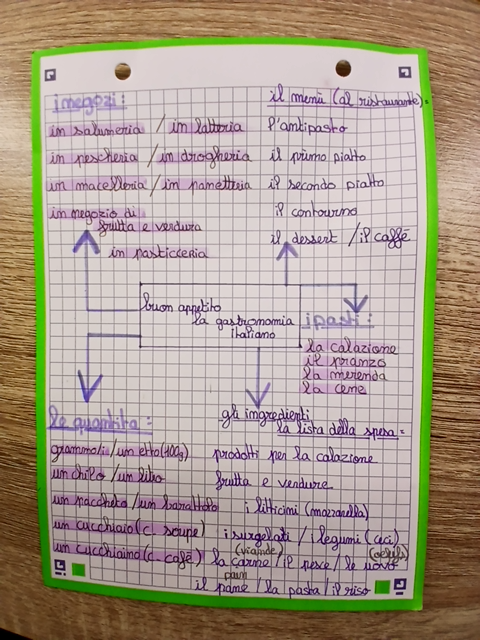 i negozi :
in salumeria / in latteria
in pescheria / in drogheria
in macelleria / in panetteria
in negozio di
frutta e verdura
in pasticceria
il menù (al ristaurante) :
l'antipasto
il primo piatto
il secondo piatto
il contourno
il dessert / il caffè
buon appetito
la gastronomia
italiano
i pasti :
la calazione
il pranzo
la merenda
la cene
le quantita :
grammoli / un etto (100g)
un chilo / un litro
un paccheto / un barattolo
un cucchiaio (c. soupe)
un cucchiaino (c. café)
gli ingredienti
la lista della spesa :
prodotti per la calazione
frutta e verdure
i litticimi (mozzarella)
i surgelati / i legumi (ceci)
(viande)
la carme / il pesce / le uovo
pain
il pane / la pasta / il riso